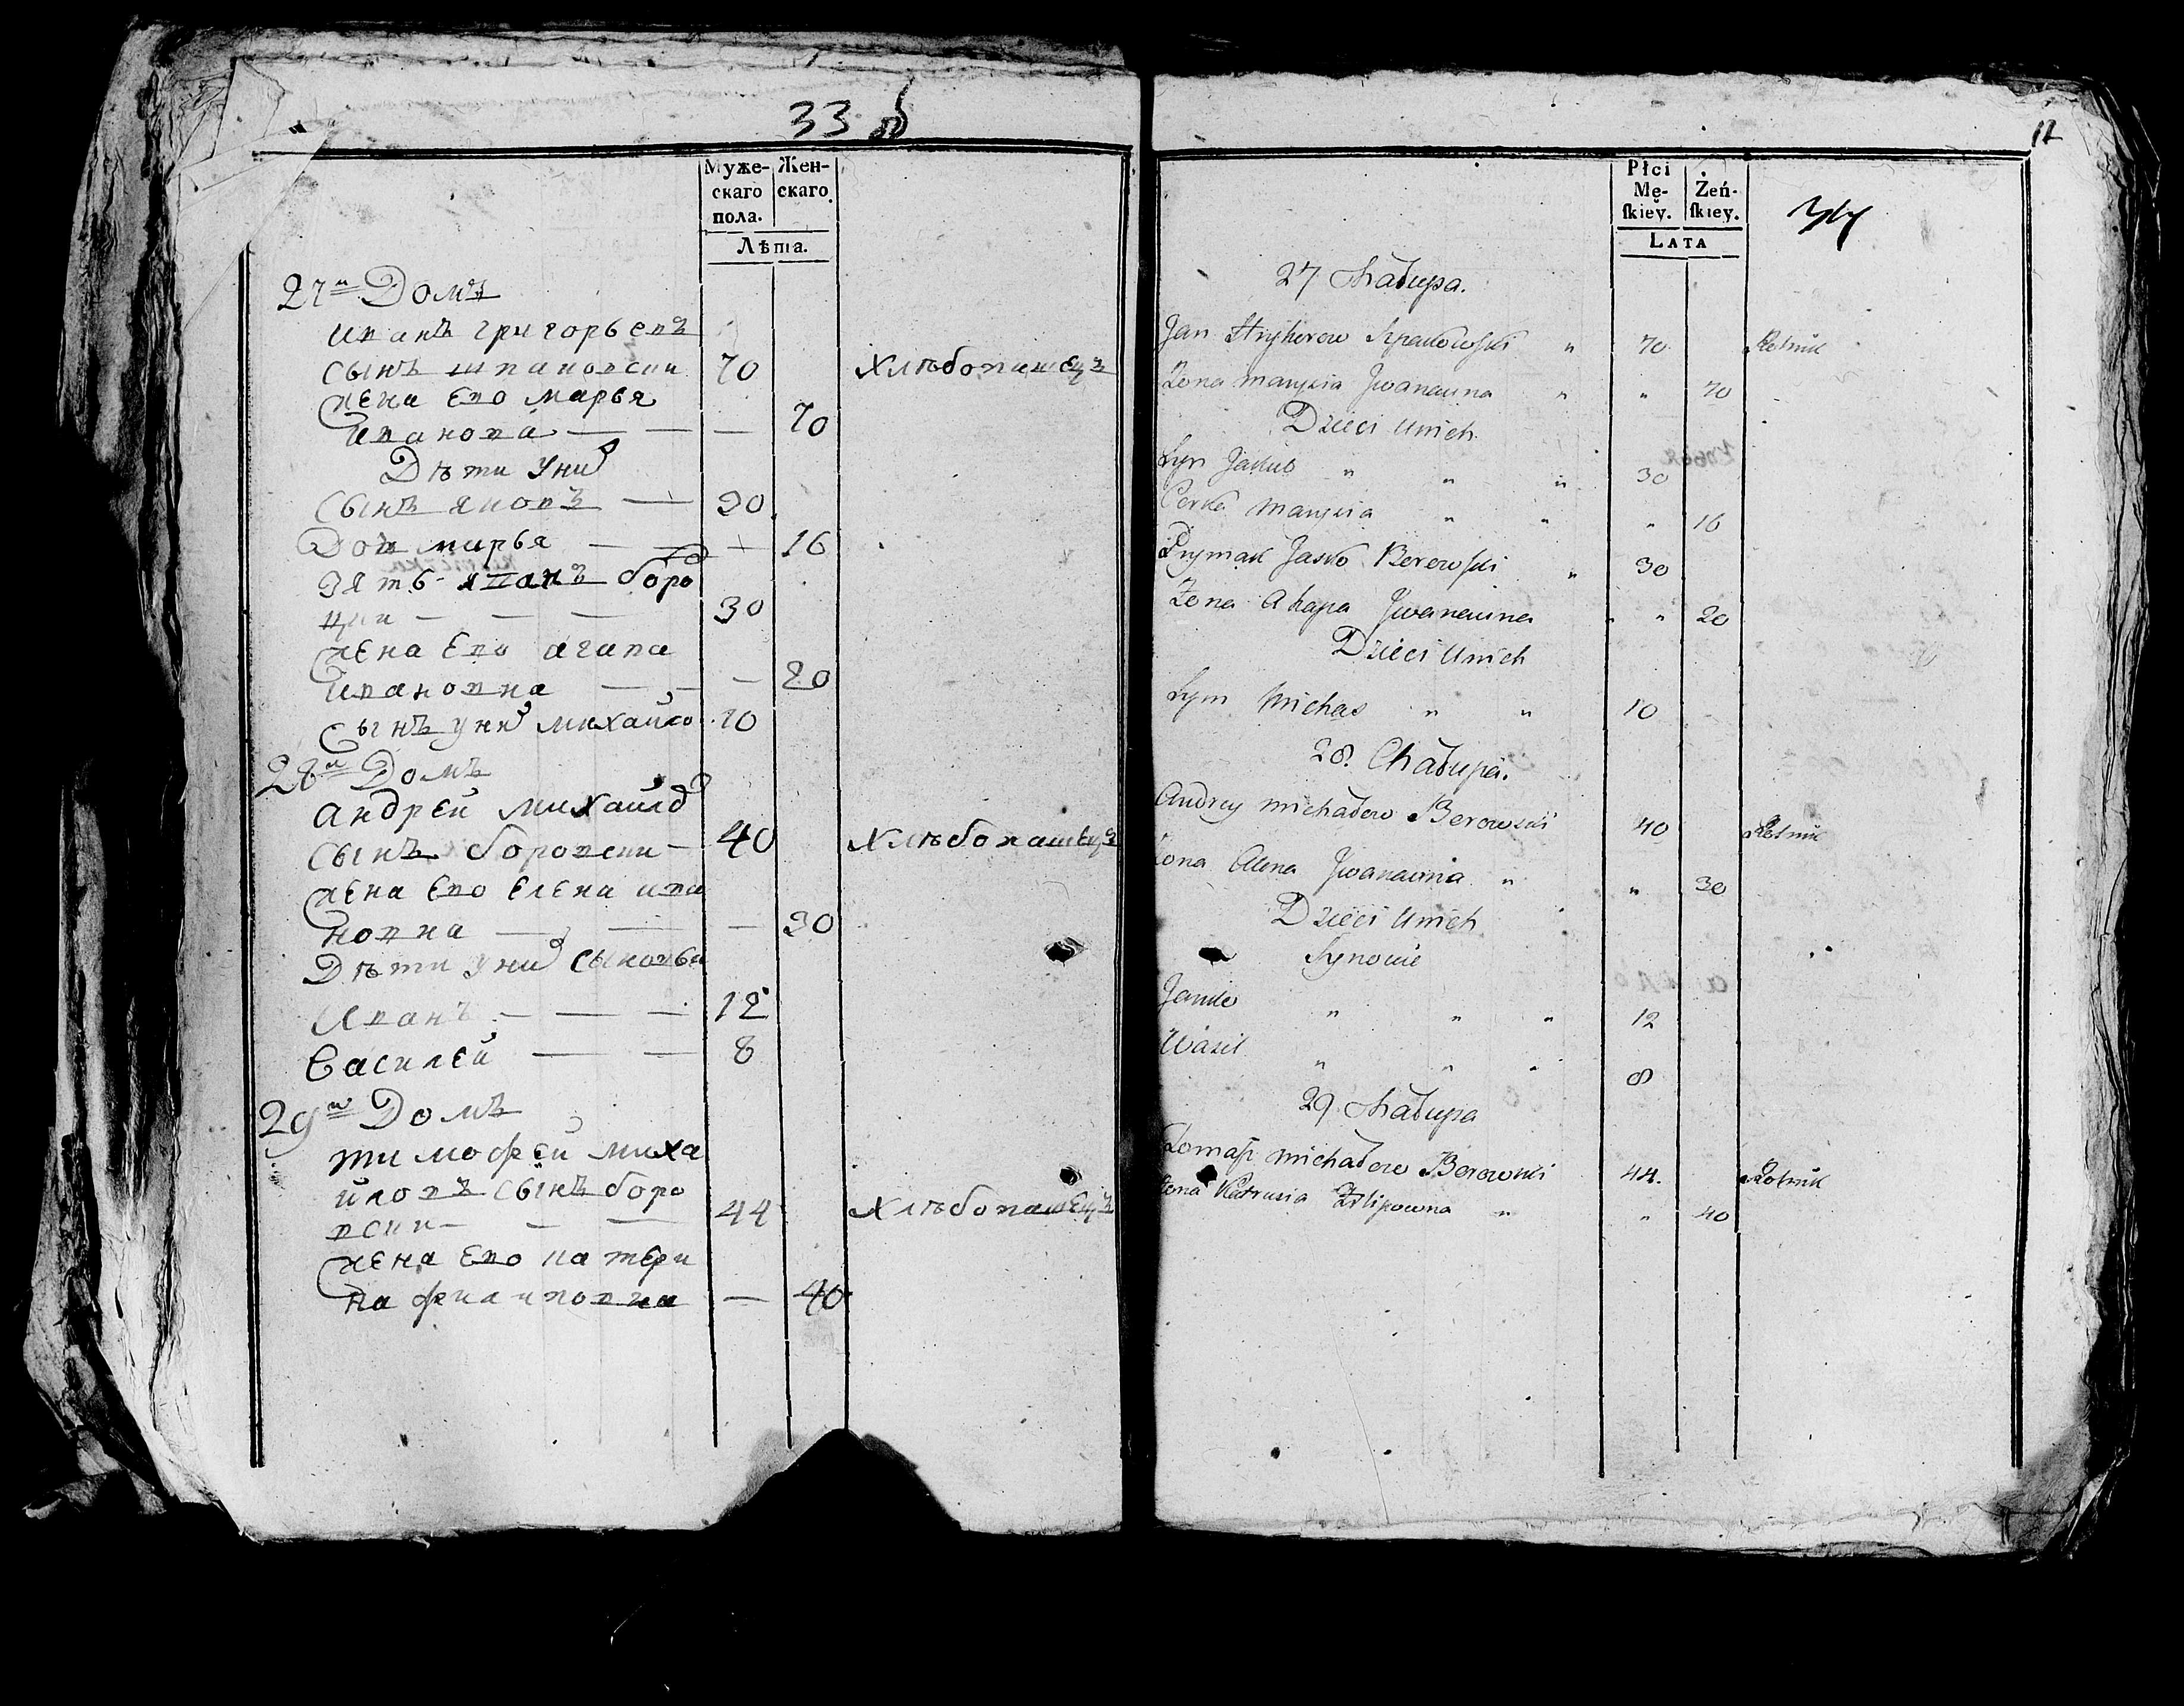 33 об
Муже-
скаго
пола.
Жен-
скаго.
Лѣта.
27й Домъ
Иванъ григорьевъ
сынъ шпановски 70 Хлѣбопашецъ
жена Ево марья
Иванова — — — 70
Дѣти у них
Сынъ яковъ — 30
Доч марья — — 16
Зять
30
жена Ево агапа
Ивановна — — — 20
Сынъ у них михайло 10
28й Домъ
Андрей михайлов
сынъ боровски — 40 Хлѣбопашецъ
жена Ево Елена ива
новна — — — 30
Дѣти у них сыновья
Иванъ — — — 12
Василей — — 8
29й Домъ
тимофей миха
йловъ сынъ боро
вски — — — 44 Хлѣбопашецъ
жена Ево катери
на филиповна — 40
12
Płci
Mę-
skiey.
Żeń-
skiey.
34
LATA
27 Chałupa.
Jan Hryhorow Szpakowski " 70 Rolnik
Żona Maryia Jwanawna " " 70
Dzieci u nich
Syn Jakub " " " 30
Corka Maryia " " " 16
Prymak Jasko Borowski " 30
Żona Ahapa Jwanawna " " 20
Dzieci u nich
Syn Michas " " 10
28. Chałupa.
Andrey Michałow Borowski 40 Rolnik
Żona Alena Jwanawna " " 30
Dzieci u nich
Synowie
Janko " " " 12
Wasil " " " 8
29. Chałupa
Michałow Borowski 44. Rolnik
Żona Katrusia Filipowna " " 40